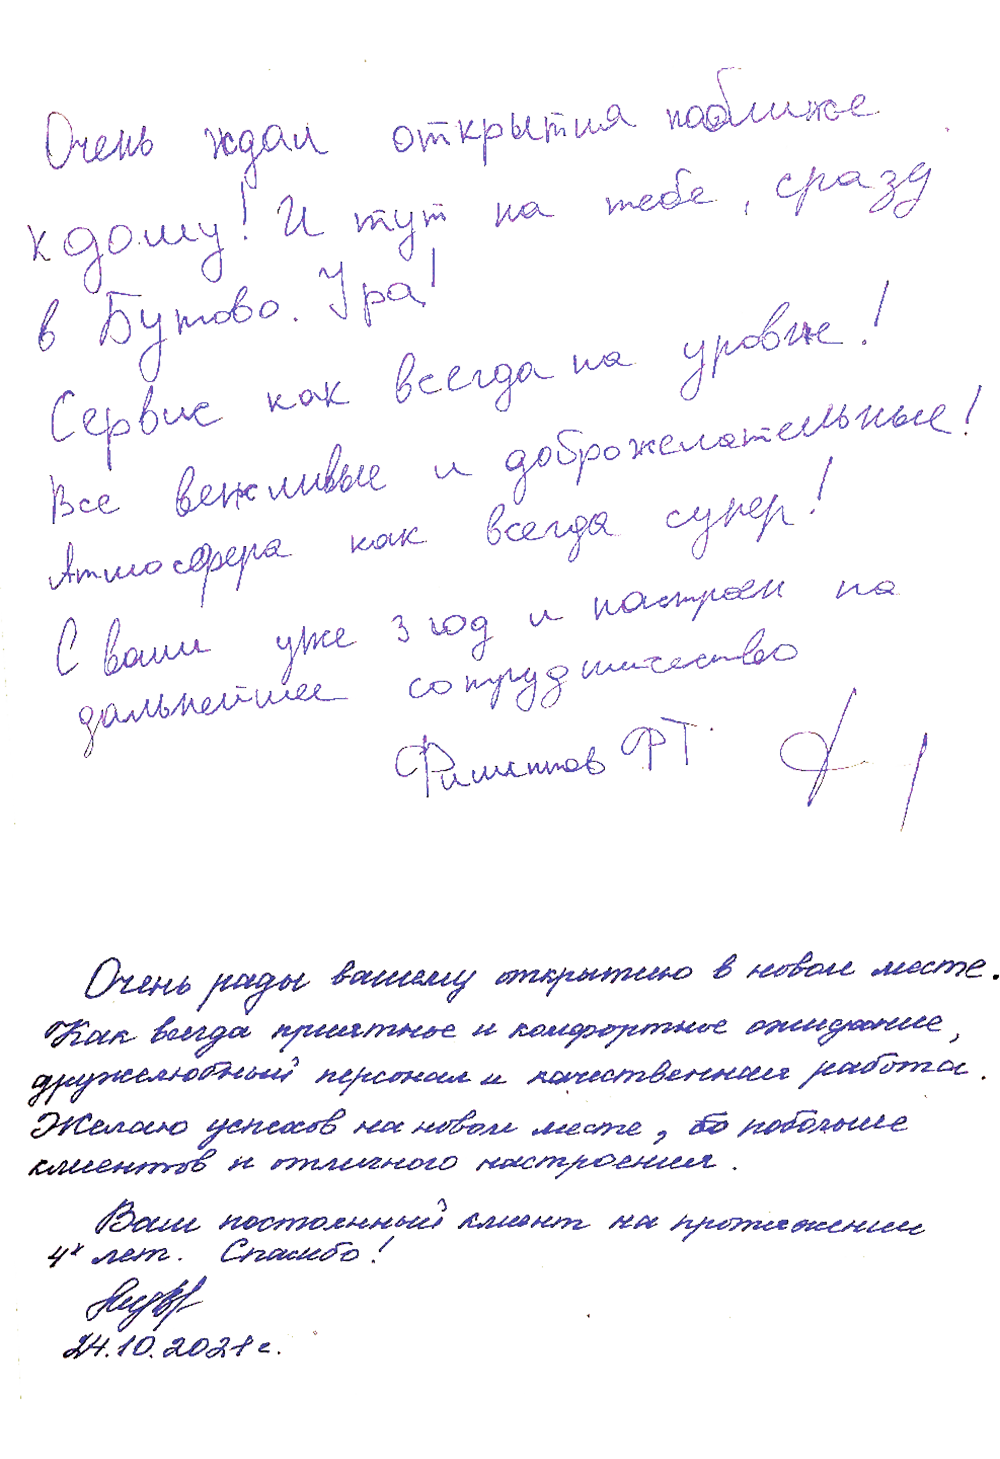 Очень ждал открытия поближе
к дому! И тут на тебе, сразу
в Бутово. Ура!
Сервис как всегда на уровне!
Все вежливые и доброжелательные!
Атмосфера как всегда супер!
С вами уже 3 год и настроен на
дальнейшее сотрудничество
Филиппов РТ
Очень рады вашему открытию в новом месте.
Как всегда приятное и комфортное ожидание,
дружелюбный персонал и качественная работа.
Желаю успехов на новом месте, побольше
клиентов и отличного настроения.
Ваш постоянный клиент на протяжении
4х лет. Спасибо!
24.10.2021 г.